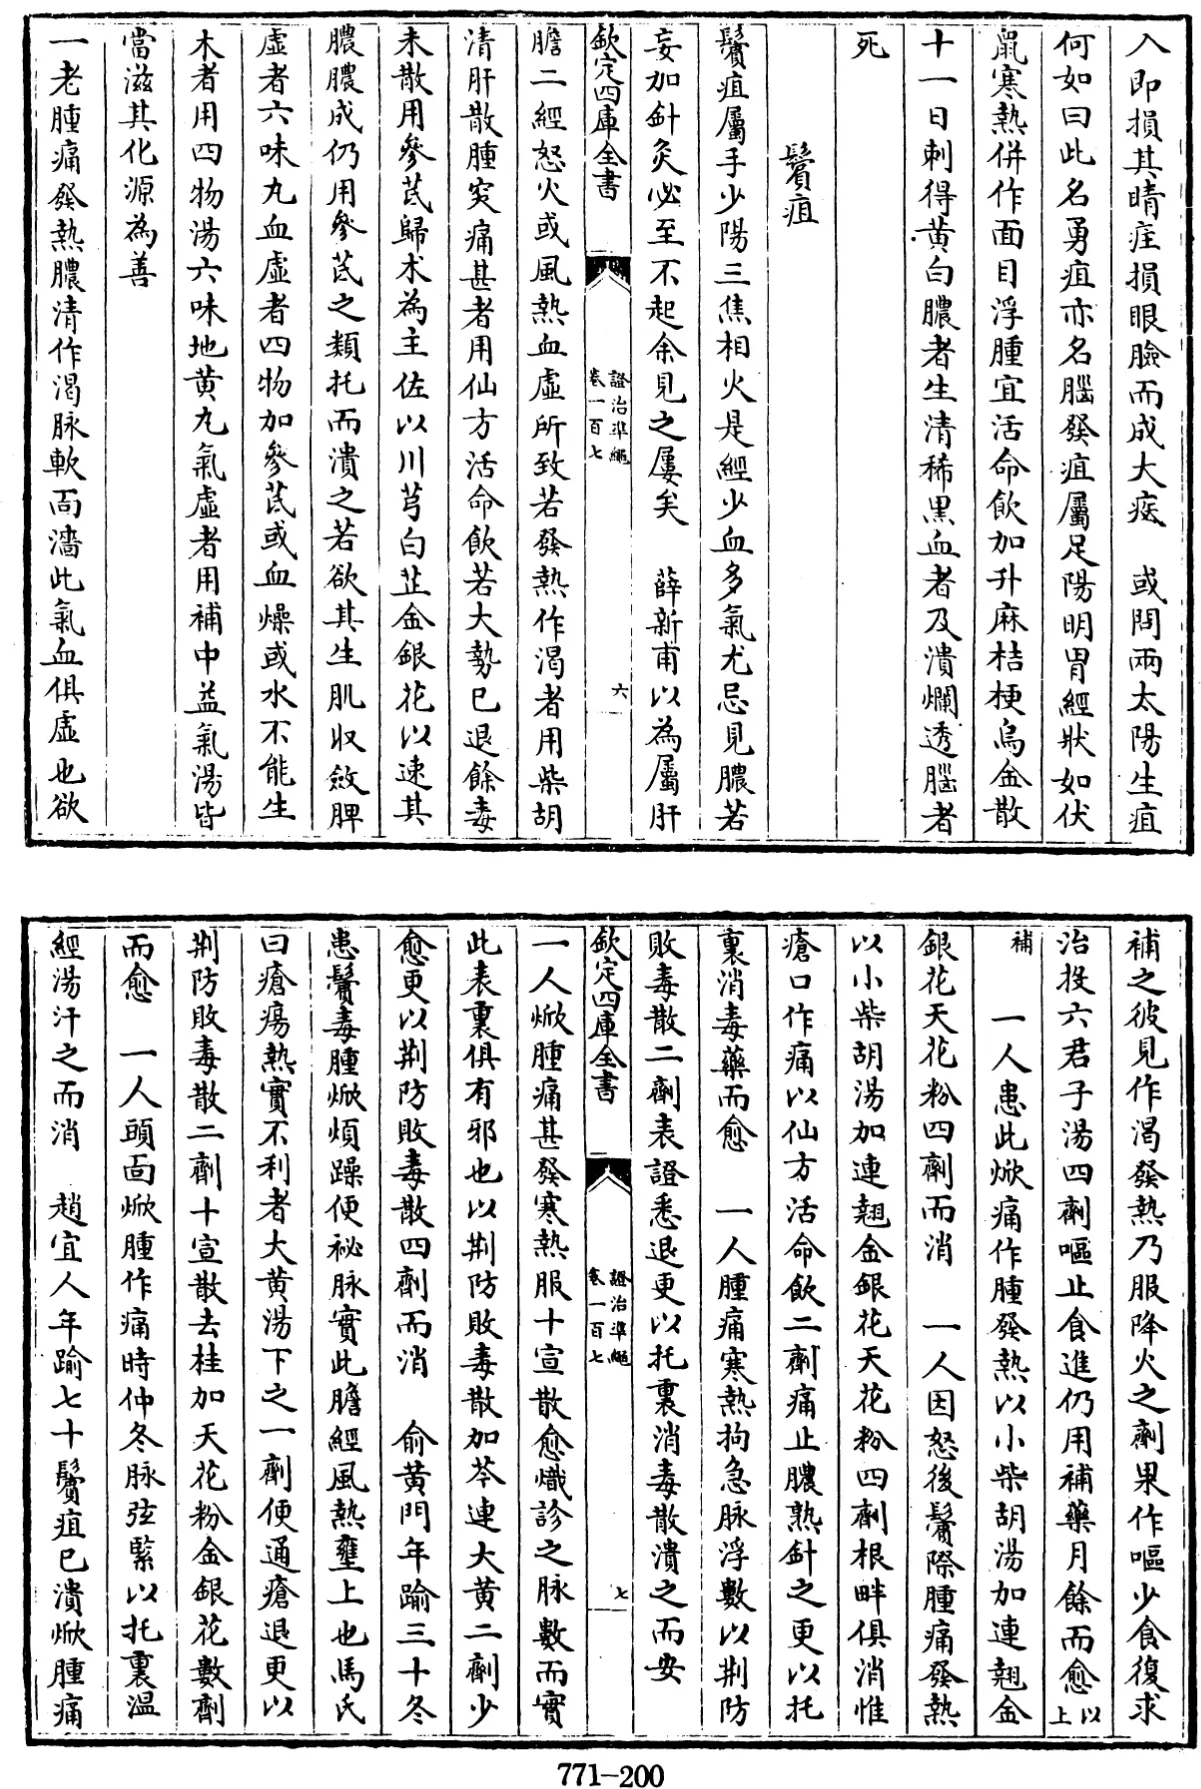 入即損其睛症損眼臉而成大痃　或問兩太陽生疽
何如曰此名勇疽亦名腦發疽屬足陽明胃經狀如伏
鼠寒熱併作面目浮腫宜活命飲加升麻桔梗烏金散
十一日刺得黄白膿者生清稀黑血者及潰爛透腦者
死
鬢疽
鬢疽屬手少陽三焦相火是經少血多氣尤忌見膿若
妄加針灸必至不起余見之屢矣　薛新甫以為屬肝
欽定四庫全書
證治準繩
卷一百七
六
膽二經怒火或風熱血虛所致若發熱作渴者用柴胡
清肝散腫焮痛甚者用仙方活命飲若大勢已退餘毒
未散用參芪歸朮為主佐以川芎白芷金銀花以速其
膿膿成仍用參芪之類托而潰之若欲其生肌收斂脾
虛者六味丸血虛者四物加參芪或血燥或水不能生
木者用四物湯六味地黄丸氣虛者用補中益氣湯皆
當滋其化源為善
一老腫痛發熱膿清作渴脉軟而濇此氣血俱虛也欲
補之彼見作渴發熱乃服降火之劑果作嘔少食復求
治投六君子湯四劑嘔止食進仍用補藥月餘而愈以上
補　一人患此焮痛作腫發熱以小柴胡湯加連翹金
銀花天花粉四劑而消　一人因怒後鬢際腫痛發熱
以小柴胡湯加連翹金銀花天花粉四劑根畔俱消惟
瘡口作痛以仙方活命飲二劑痛止膿熟針之更以托
裏消毒藥而愈　一人腫痛寒熱拘急脉浮數以荆防
敗毒散二劑表證悉退更以托裏消毒散潰之而安
欽定四庫全書
證治準繩
卷一百七
七
一人焮腫痛甚發寒熱服十宣散愈熾診之脉數而實
此表裏俱有邪也以荆防敗毒散加芩連大黄二劑少
愈更以荆防敗毒散四劑而消　俞黄門年踰三十冬
患鬢毒腫焮煩躁便祕脉實此膽經風熱壅上也馬氏
曰瘡瘍熱實不利者大黄湯下之一劑便通瘡退更以
荆防敗毒散二劑十宣散去桂加天花粉金銀花數劑
而愈　一人頭面焮腫作痛時仲冬脉弦緊以托裏温
經湯汗之而消　趙宜人年踰七十鬢疽已潰焮腫痛
771-200